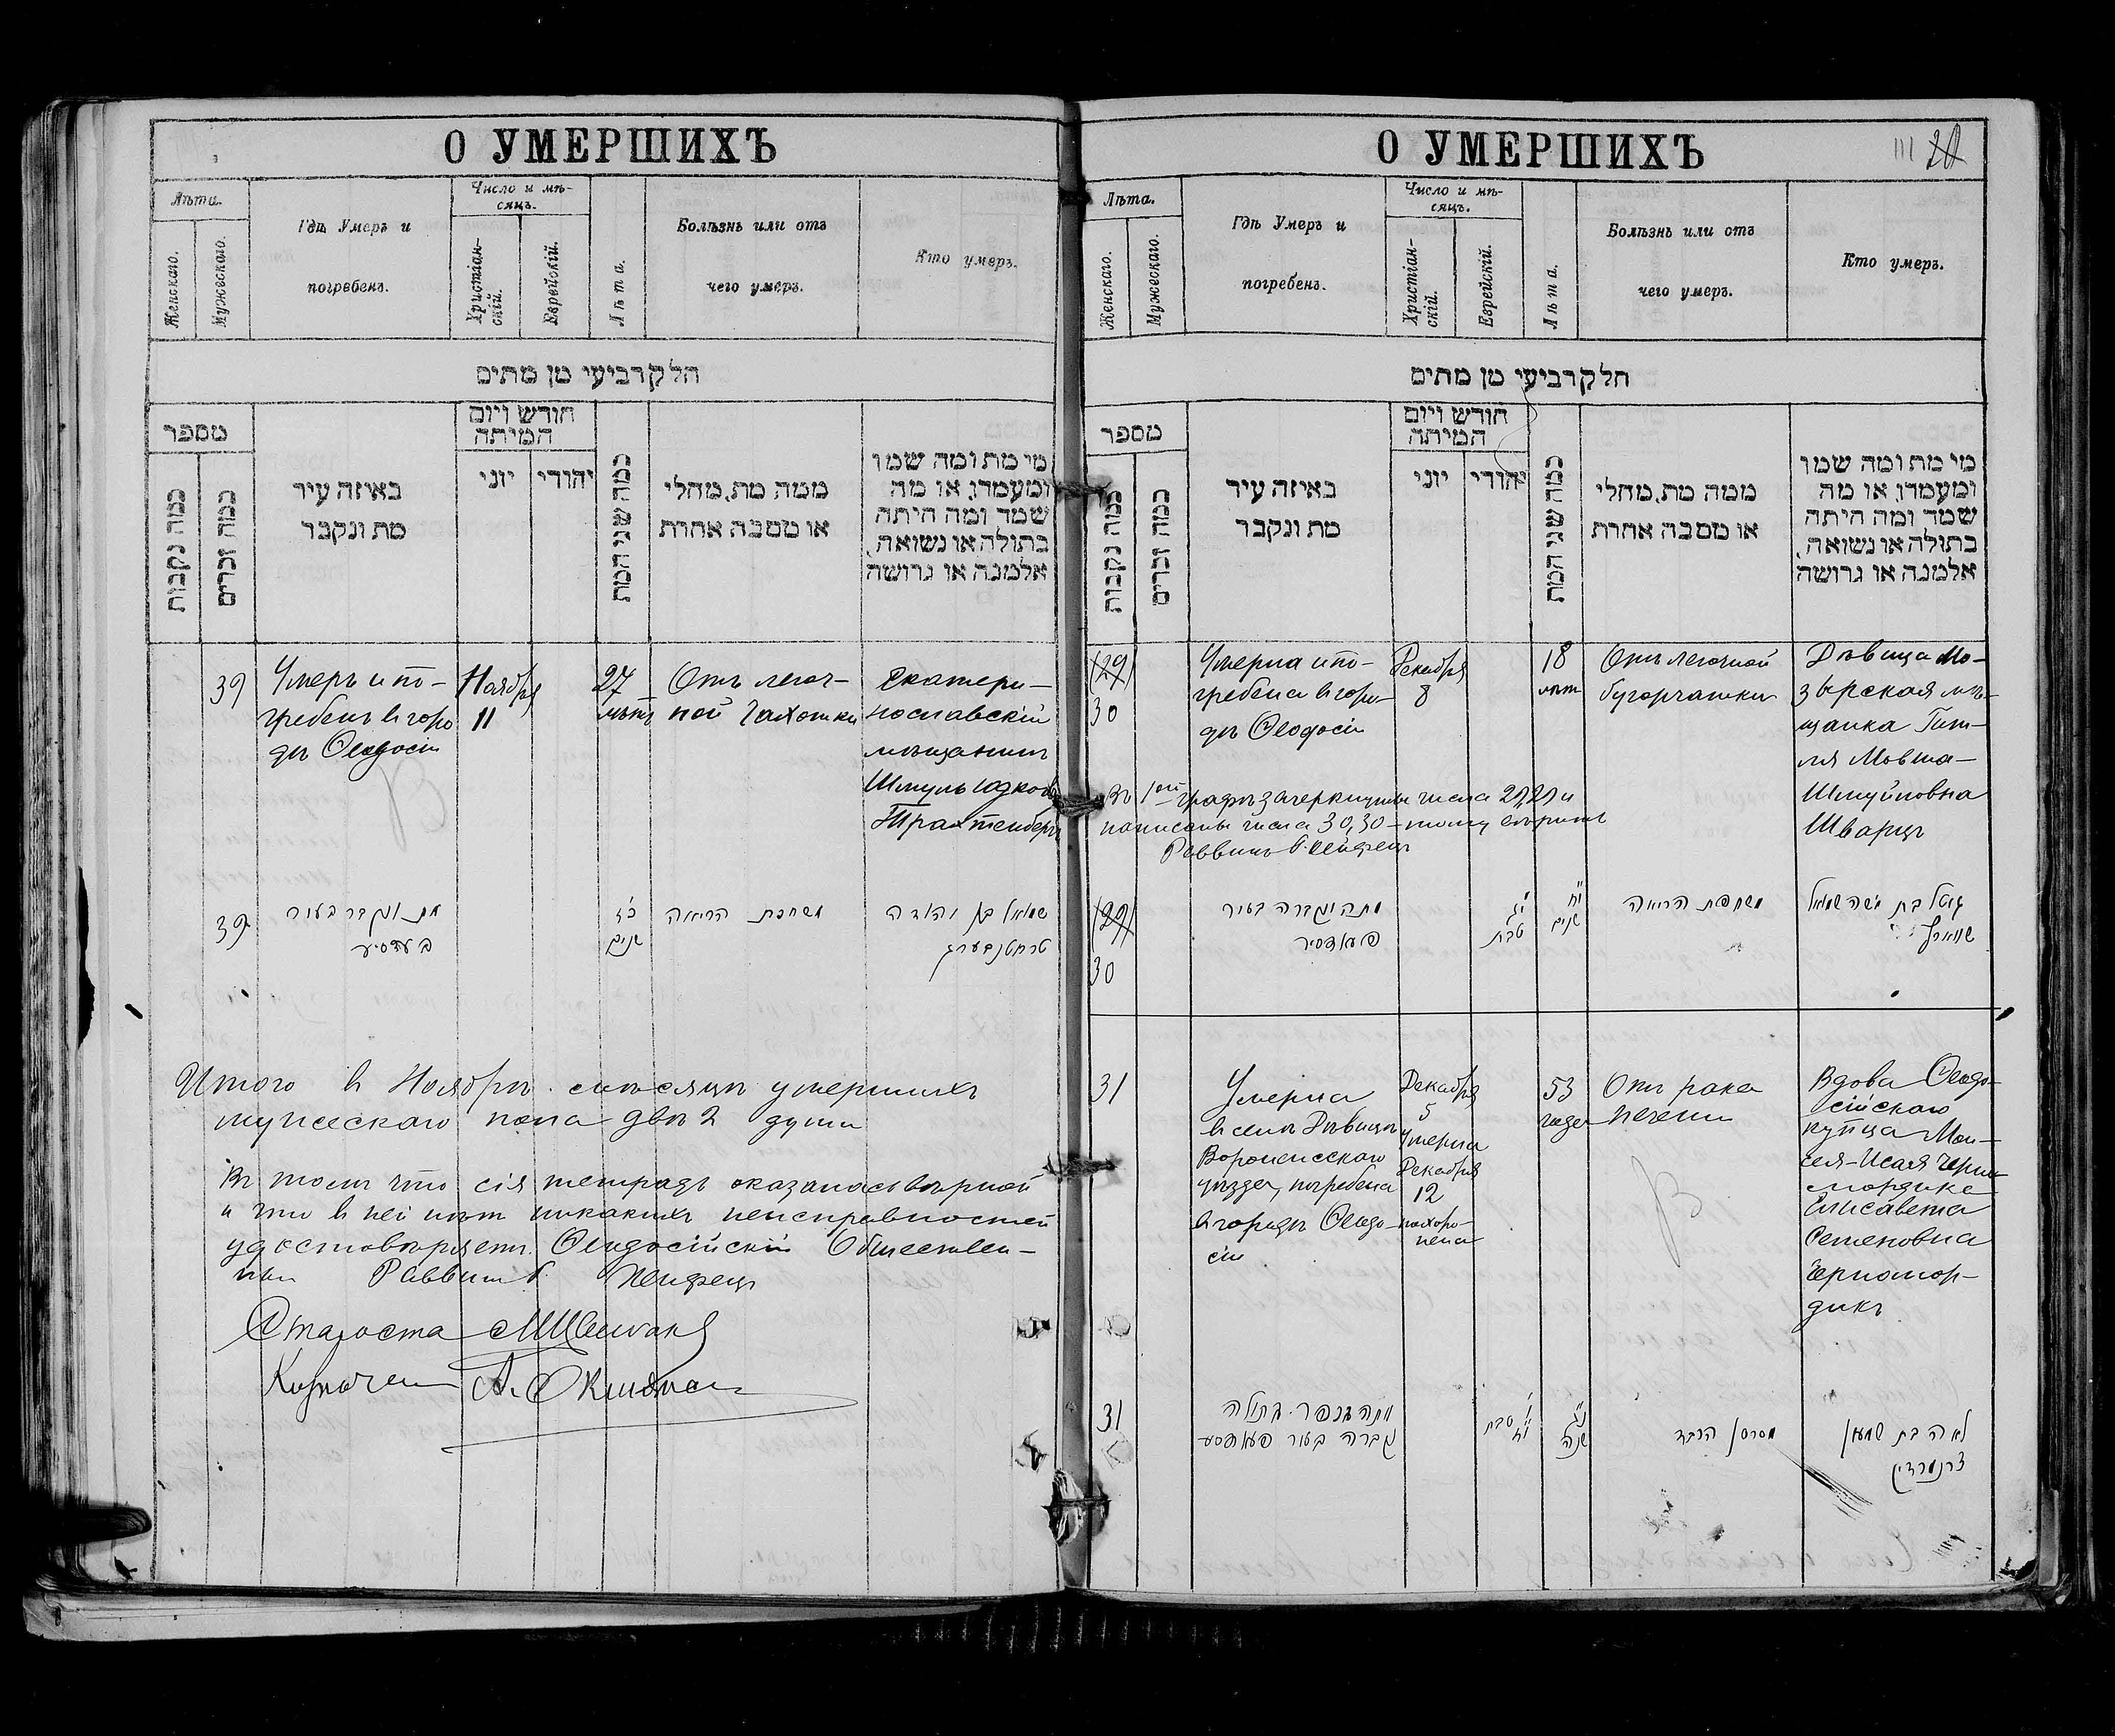 О УМЕРШИХЪ
Лѣта.
Женскаго.
Мужескаго.
Гдѣ Умеръ и
погребенъ.
Число и мѣ-
сяцъ.
Христіан-
скій.
Еврейскій.
Лѣта.
Болѣзнь или отъ
чего умеръ.
Кто умеръ.
חלק רביעי מן מתים
מספר
כמה נקבות
כמה זכרים
באיזה עיר
מת ונקבר
חודש ויום
המיתה
יוני
יהודי
כמה שני המת
ממה מת, מחלי
או מסבה אחרת
מי מת ומה שמו
ומעמדו, או מה
שמד ומה היתה
בתולה או נשואה,
אלמנה או גרושה
39
Умеръ и по-
гребенъ въ горо
дѣ Ѳеодосіи
Ноября
11
27
лѣтъ
Отъ легоч-
ной чахотки
Екатери-
нославскій
мѣщанинъ
Шмуль Юдковъ
Трахтенбергъ
39
מת ונקבר בעיר
כ״ז
שנים
משחפת הריאה
שמואל בן יהודה
טרחטנבערג
Итого въ Ноябрѣ мѣсяцѣ умершихъ
мужескаго пола двѣ 2 души
Въ томъ что сія тетрадь оказалась вѣрной
и что въ ней нѣтъ никакихъ неисправностей
удостовѣряетъ Ѳеодосійскій Обществен-
ный Раввинъ
Староста
Казначей
О УМЕРШИХЪ
111 20
Лѣта.
Женскаго.
Мужескаго.
Гдѣ Умеръ и
погребенъ.
Число и мѣ-
сяцъ.
Христіан-
скій.
Еврейскій.
Лѣта.
Болѣзнь или отъ
чего умеръ.
Кто умеръ.
חלק רביעי מן מתים
מספר
כמה נקבות
כמה זכרים
באיזה עיר
מת ונקבר
חודש ויום
המיתה
יוני
יהודי
כמה שני המת
ממה מת, מחלי
או מסבה אחרת
מי מת ומה שמו
ומעמדו, או מה
שמד ומה היתה
בתולה או נשואה,
אלמנה או גרושה
(29)
30
Умерла и по-
гребена въ горо-
дѣ Ѳеодосіи
Декабря
8
18
лѣтъ
Отъ легочной
бугорчатки
Дѣвица Мо-
зырская мѣ-
щанка Гит-
ля Мовша-
Шмуйловна
Шварцъ
Въ 1ой графѣ зачеркнуты числа 29, 29 и
написаны числа 30, 30 – тому вѣрить
Раввинъ
(29)
30
מתה ונקברה בעיר
טבת
י״ח
שנים
משחפת הריאה
גיטל בת משה שמואל
שווארץ
31
Умерла
въ селѣ Дѣвицѣ
Воронежскаго
уѣзда, погребена
въ городѣ Ѳеодо-
сіи
Декабря
5
умерла
Декабря
12
похоро-
нена
53
года
Отъ рака
печени
Вдова Ѳеодо-
сійскаго
купца Мои-
сея-Исая Черно
мордика
Елисавета
Семеновна
Черномор-
дикъ
31
מתה בכפר בתולה
טבת
נ״ג
שנה
מסרטן הכבד
לאה בת שמעון